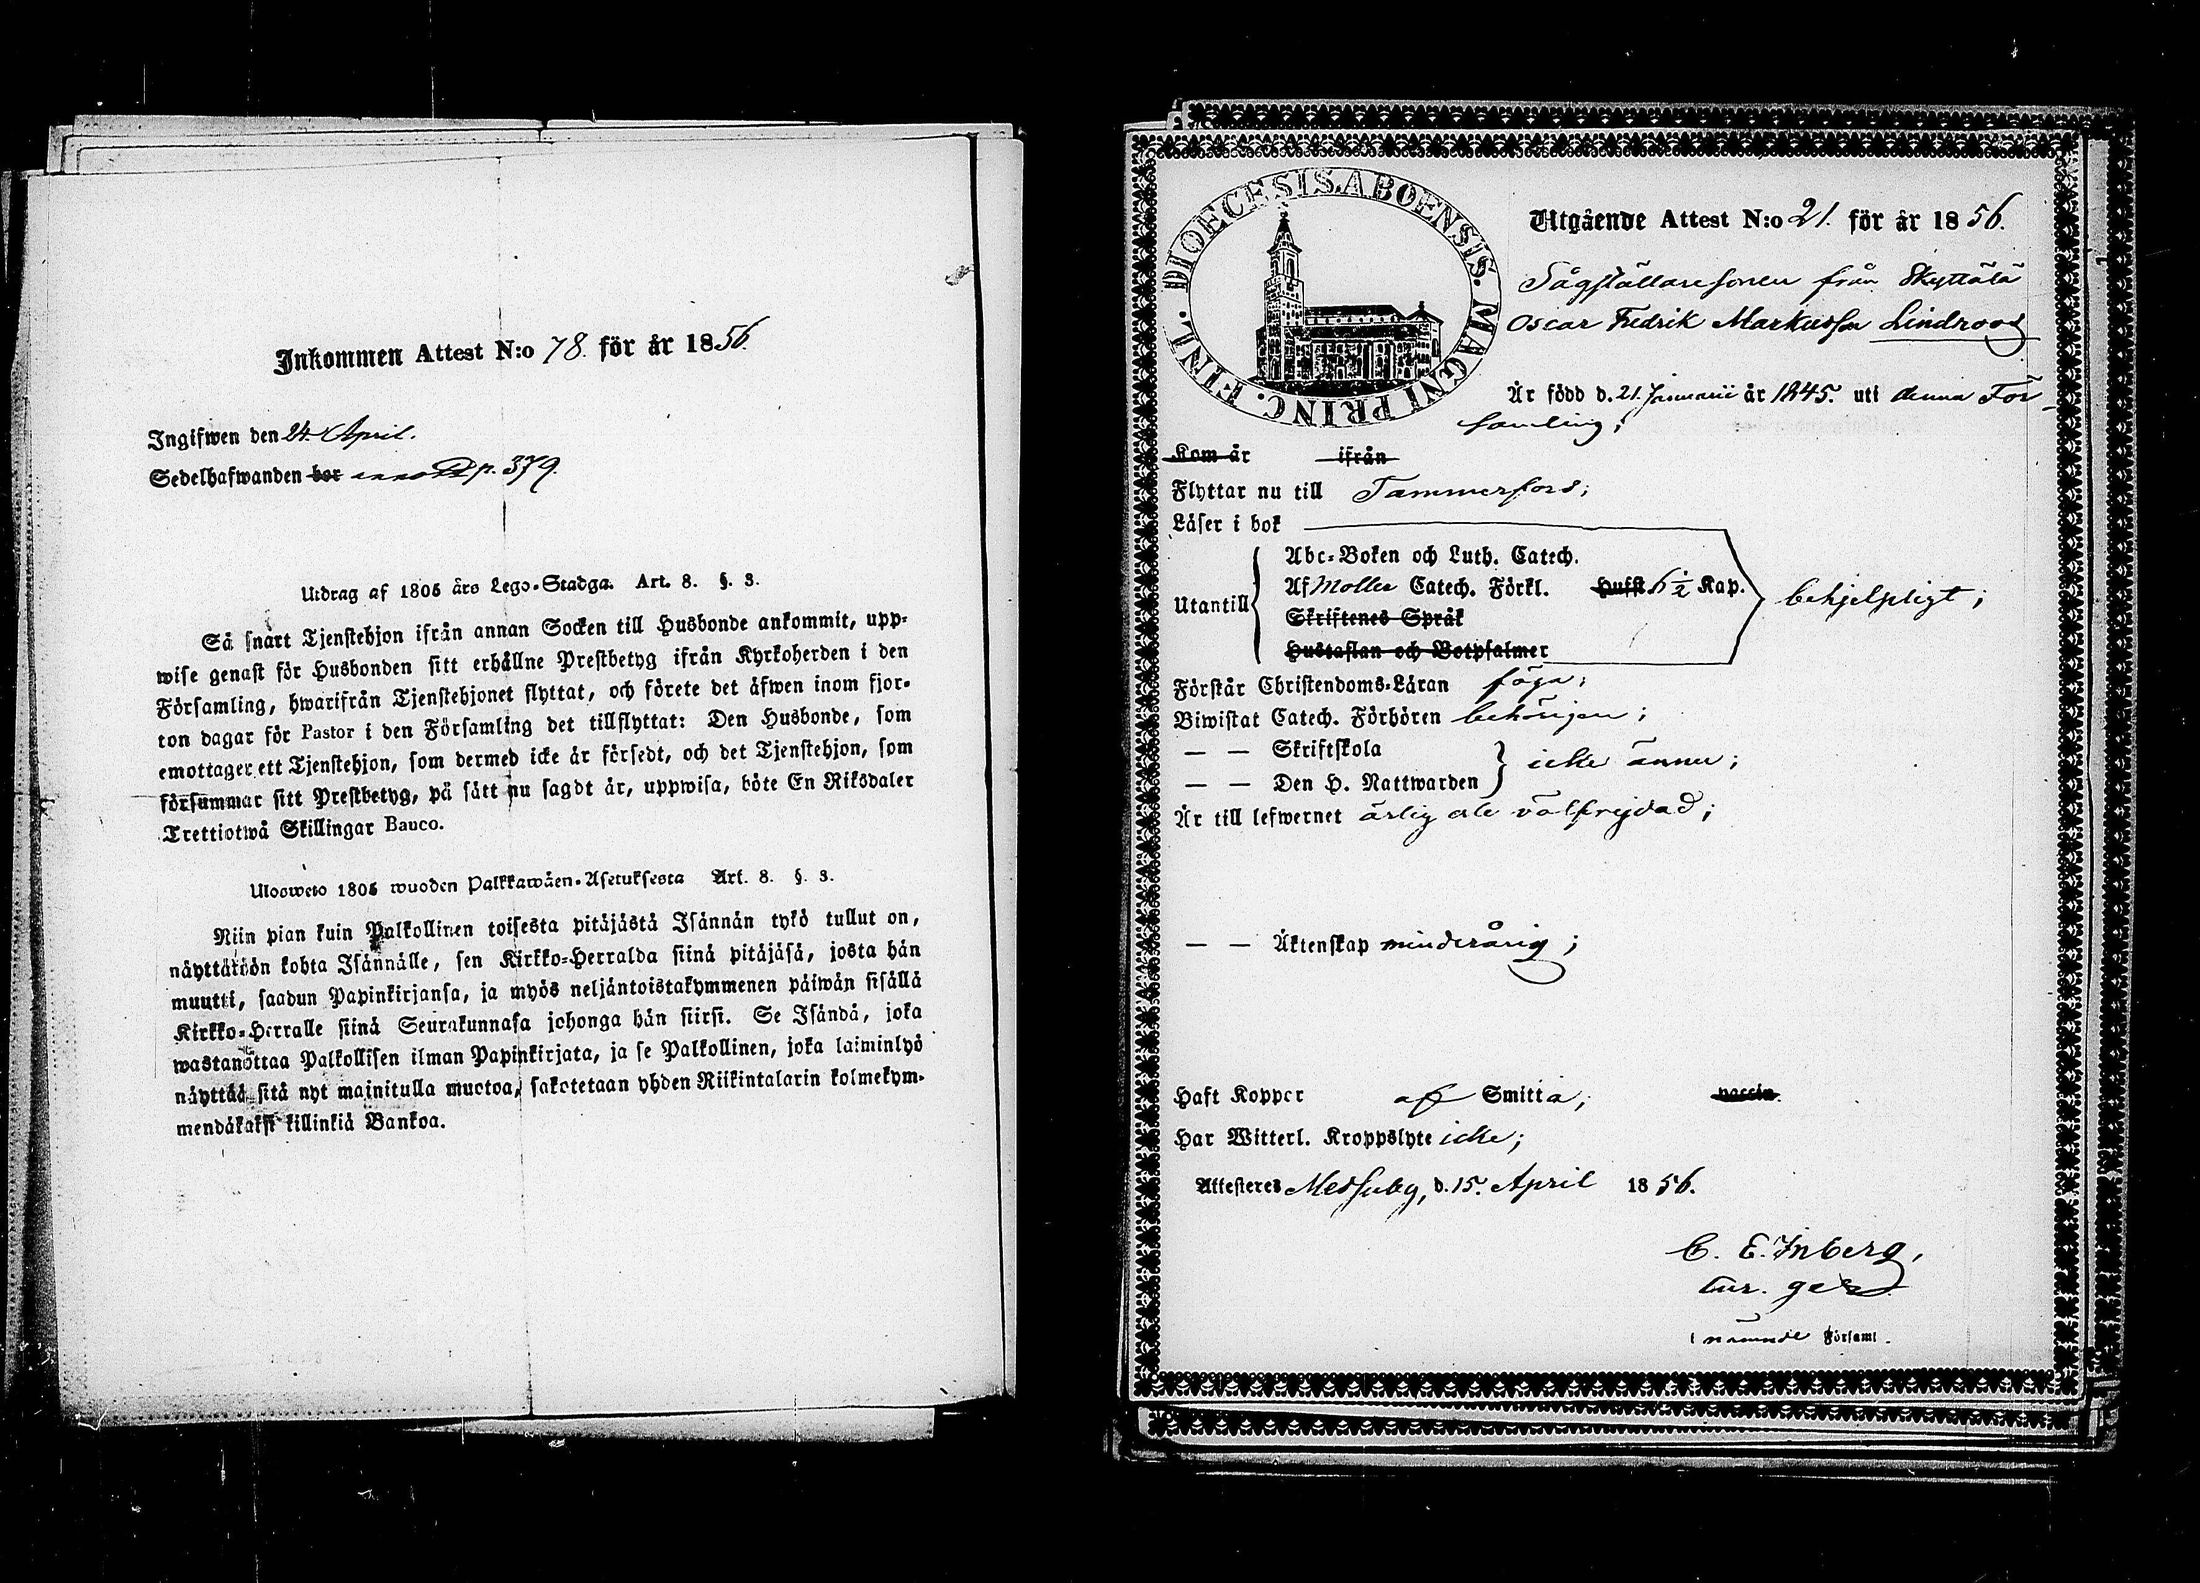 Inkommen Attest N:o 78. för år 1856.
Ingifwen den 24. April.
Sedelhafwanden bor p. 379.
Utdrag af 1805 års Lego-Stadga. Art. 8. §. 3.
Så snart Tjenstehjon ifrån annan Socken till Husbonde ankommit, upp-
wise genast för Husbonden sitt erhållne Prestbetyg ifrån Kyrkoherden i den
Församling, hwarifrån Tjenstehjonet flyttat, och förete det äfwen inom fjor-
ton dagar för Pastor i den Församling det tillflyttat: Den Husbonde, som
emottager ett Tjenstehjon, som dermed icke är försedt, och det Tjenstehjon, som
försummar sitt Prestbetyg, på sätt nu sagdt är, uppwisa, böte En Riksdaler
Trettiotwå Skillingar Banco.
Ulosweto 1805 wuoden Palkkawäen-Asetuksesta Art. 8. §. 3.
Niin pian kuin Palkollinen toisesta pitäjästä Isännän tykö tullut on,
näyttäköön kohta Isännälle, sen Kirkko-Herralda siinä pitäjäsä, josta hän
muutti, saadun Papinkirjansa, ja myös neljäntoistakymmenen päiwän sisällä
Kirkko-Herralle siinä Seurakunnasa johonga hän siirsi. Se Isändä, joka
wastanottaa Palkollisen ilman Papinkirjata, ja se Palkollinen, joka laiminlyö
näyttää sitä nyt mainitulla muotoa, sakotetaan yhden Riikintalarin kolmekym-
mendäkaksi killinkiä Bankoa.
DIOECESIS. ABOENSIS. MAGNI PRINC. FINL.
Utgående Attest N:o 21. för år 1856.
Sågställaresonen från Skyttälä
Oscar Fredrik Markusson Lindroos
Är född d. 21. Januarii år 1845. uti denna För-
samling;
Kom år ifrån
Flyttar nu till Tammerfors;
Läser i bok
Abc-Boken och Luth. Catech.
Utantill Af Möller Catech. Förkl. Hufst 6½ Kap. behjelpligt;
Skriftenes Språk
Hustaflan och Botpsalmer
Förstår Christendoms-Läran föga;
Biwistat Catech. Förhören behörigen;
— — Skriftskola
icke ännu;
— — Den H. Nattwarden
Är till lefwernet ärlig och välfrejdad;
— — Äktenskap minderårig;
Haft Kopper af Smitta; vaccin.
Har Witterl. Kroppslyte icke;
Attesteres Messuby, d. 15. April 1856.
C. E. Inberg,
cur. ger.
i nämnde Församl.